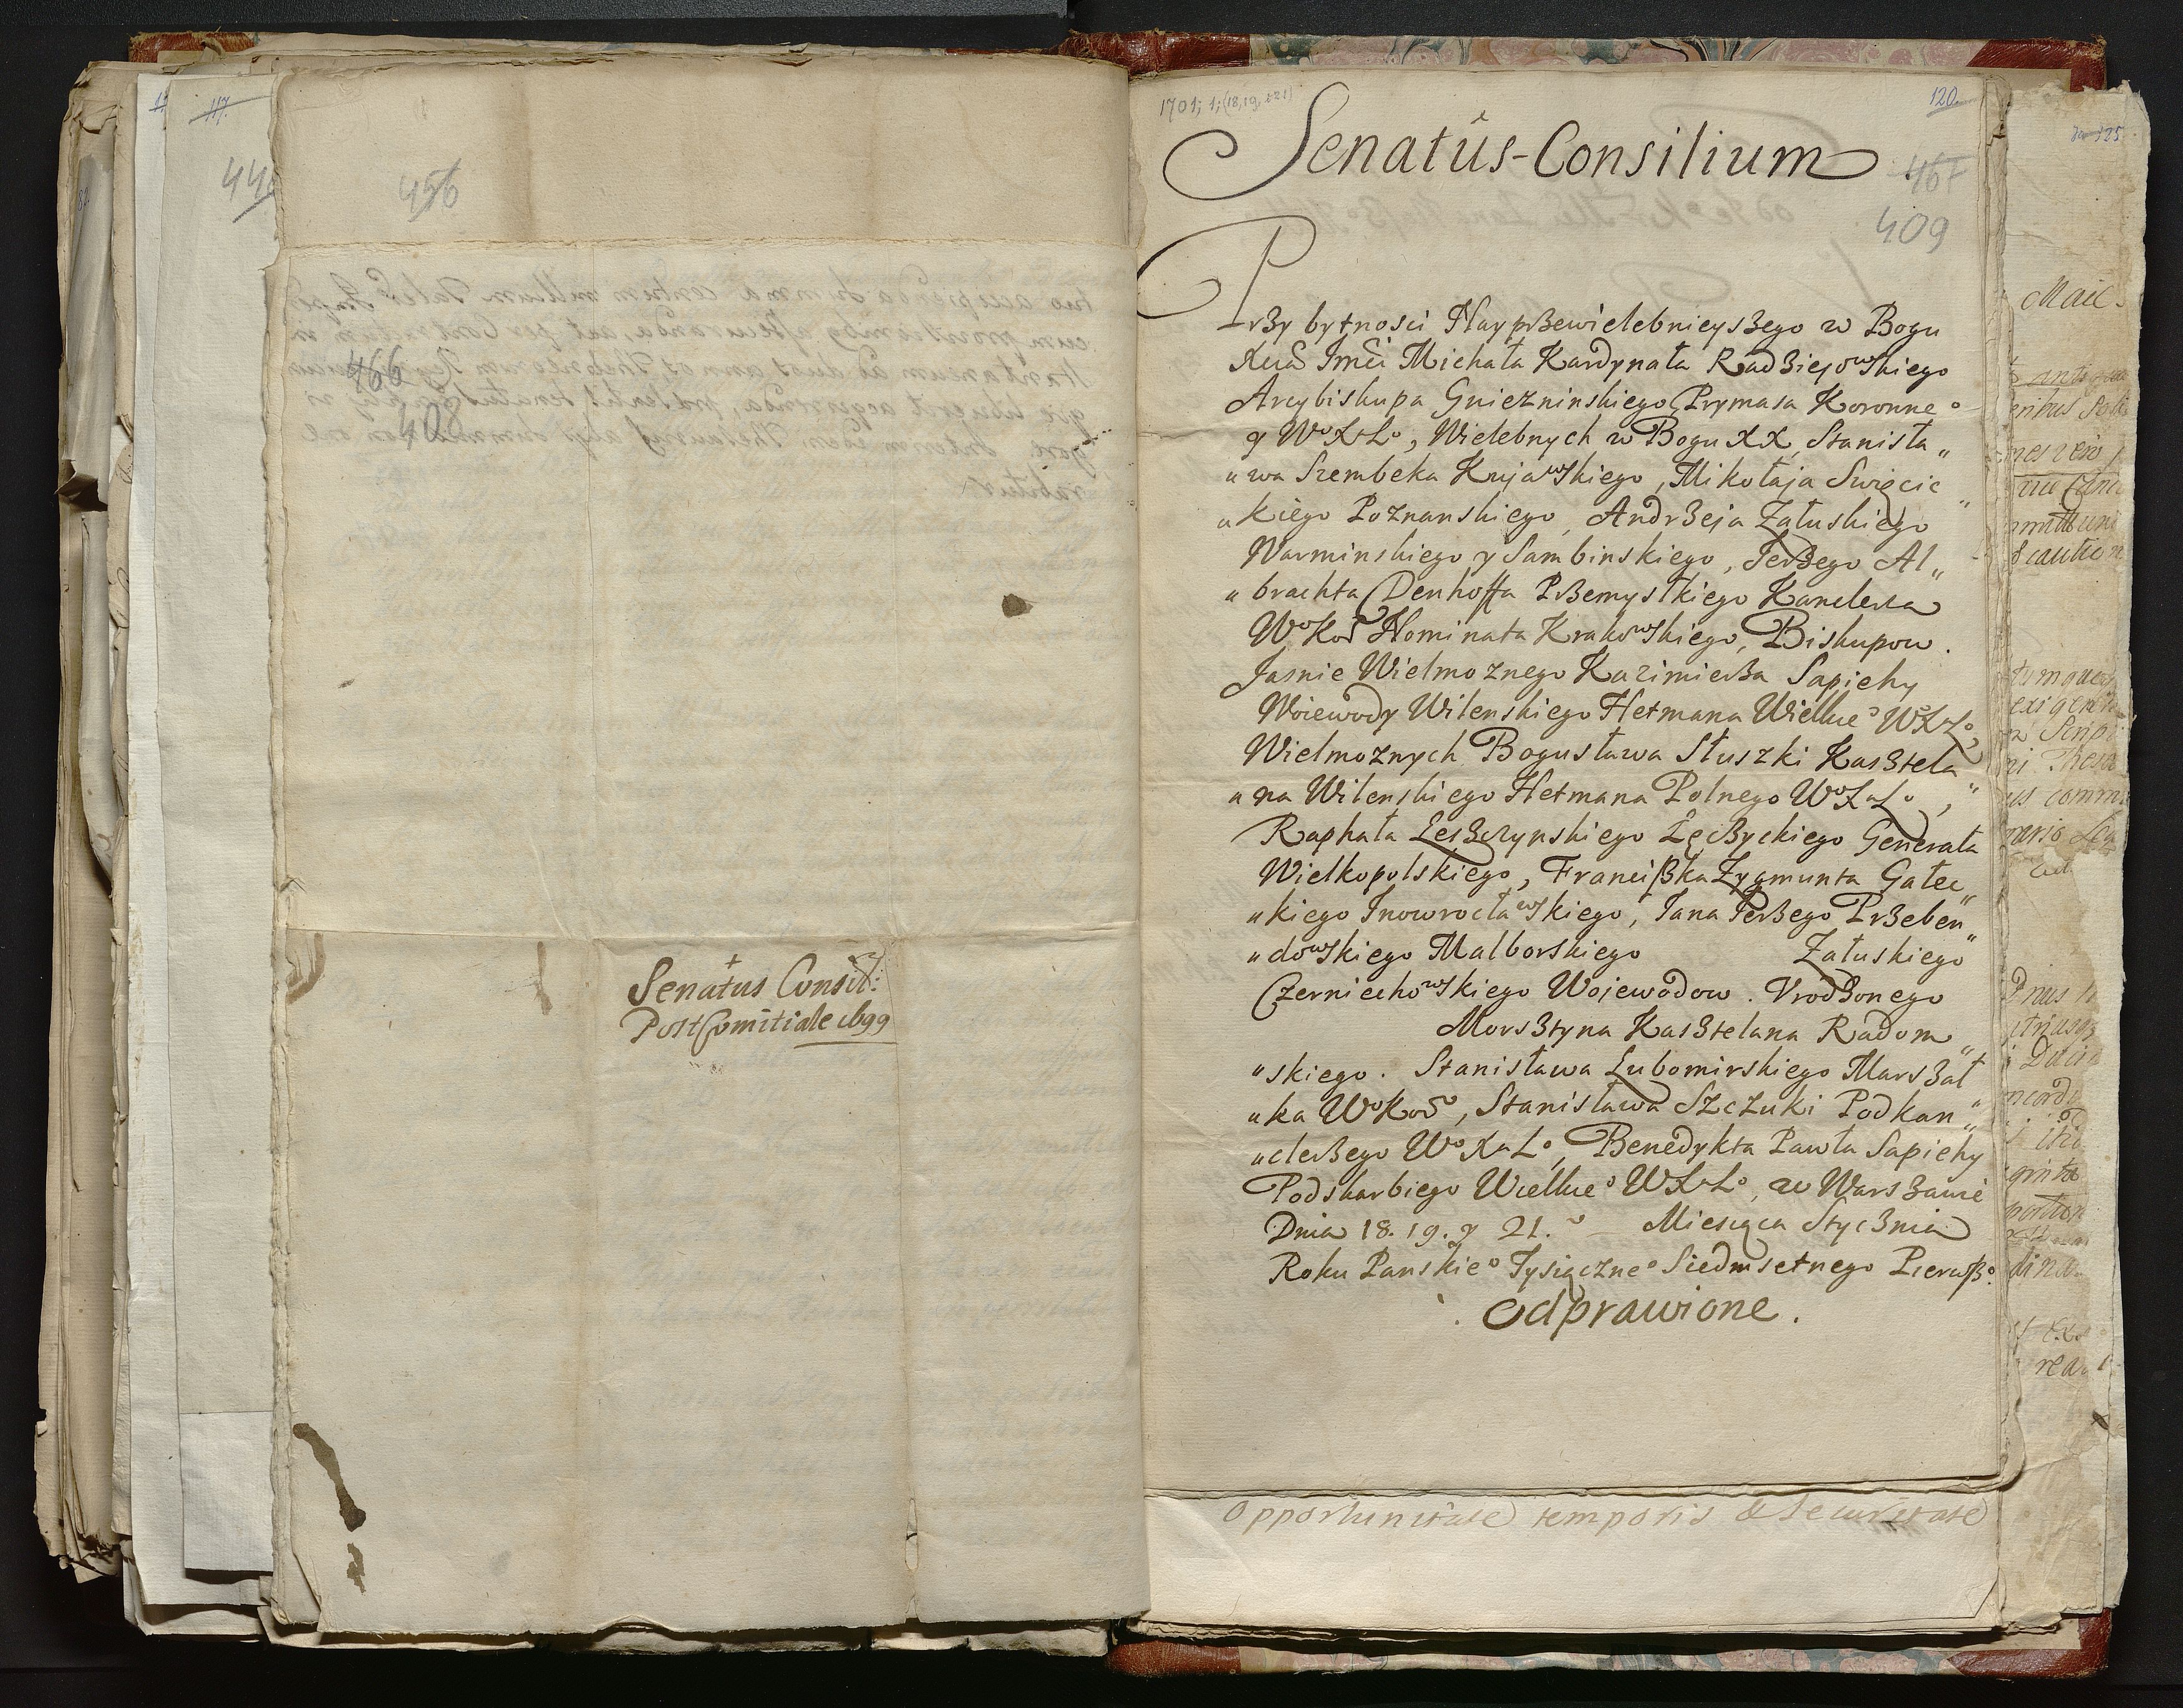 117.
446
456
466
408
Senatus Consil:
Post Comitiale 1699
1701; 1; (18, 19, i 21)
120.
Senatûs-Consilium
467
409
Przy bytnosci Nayprzewielebnieyszego w Bogu
Xcia Imci Michała Kardynała Radziejowskiego
Arcybiskupa Gniezninskiego Prymasa Koronneo
y WoXaLo, Wielebnych w Bogu XX, Stanisła„
„wa Szembeka Kujawskiego, Mikołaja Swięcic„
„kiego Poznanskiego, Andrzeja Załuskiego
Warminskiego y Sambinskiego, Jerzego Al„
„brachta Denhoffa Przemyslkiego Kanclerza
WoKoo Nominata Krakowskiego, Biskupow.
Jasnie Wielmoznego Kazimierza Sapiehy
Woiewody Wilenskiego Hetmana Wielkieo WXaLo,
Wielmoznych Bogusława Słuszki Kasztela„
„na Wilenskiego Hetmana Polnego WoXaLo,
Raphała Leszczynskiego Łęczyckiego Generała
Wielkopolskiego, Franciszka Zygmunta Gałec„
„kiego Inowrocławskiego, Jana Jerzego Przeben„
„dowskiego Malborskiego Załuskiego
Czerniechowskiego Wojewodow. Vrodzonego
Morsztyna Kasztelana Radom„
„skiego. Stanisława Lubomirskiego Marszał„
„ka WoKoo, Stanisława Szczuki Podkan„
„clerzego WoXaLo, Benedykta Pawła Sapiehy
Podskarbiego Wielkieo WXaLo, w Warszawie
Dnia 18. 19. y 21.o Miesiąca Stycznia
Roku Panskieo Tysiączneo Siedmsetnego Pierwszo.
Odprawione.
Opportunitate temporis & securitate
125
Maie